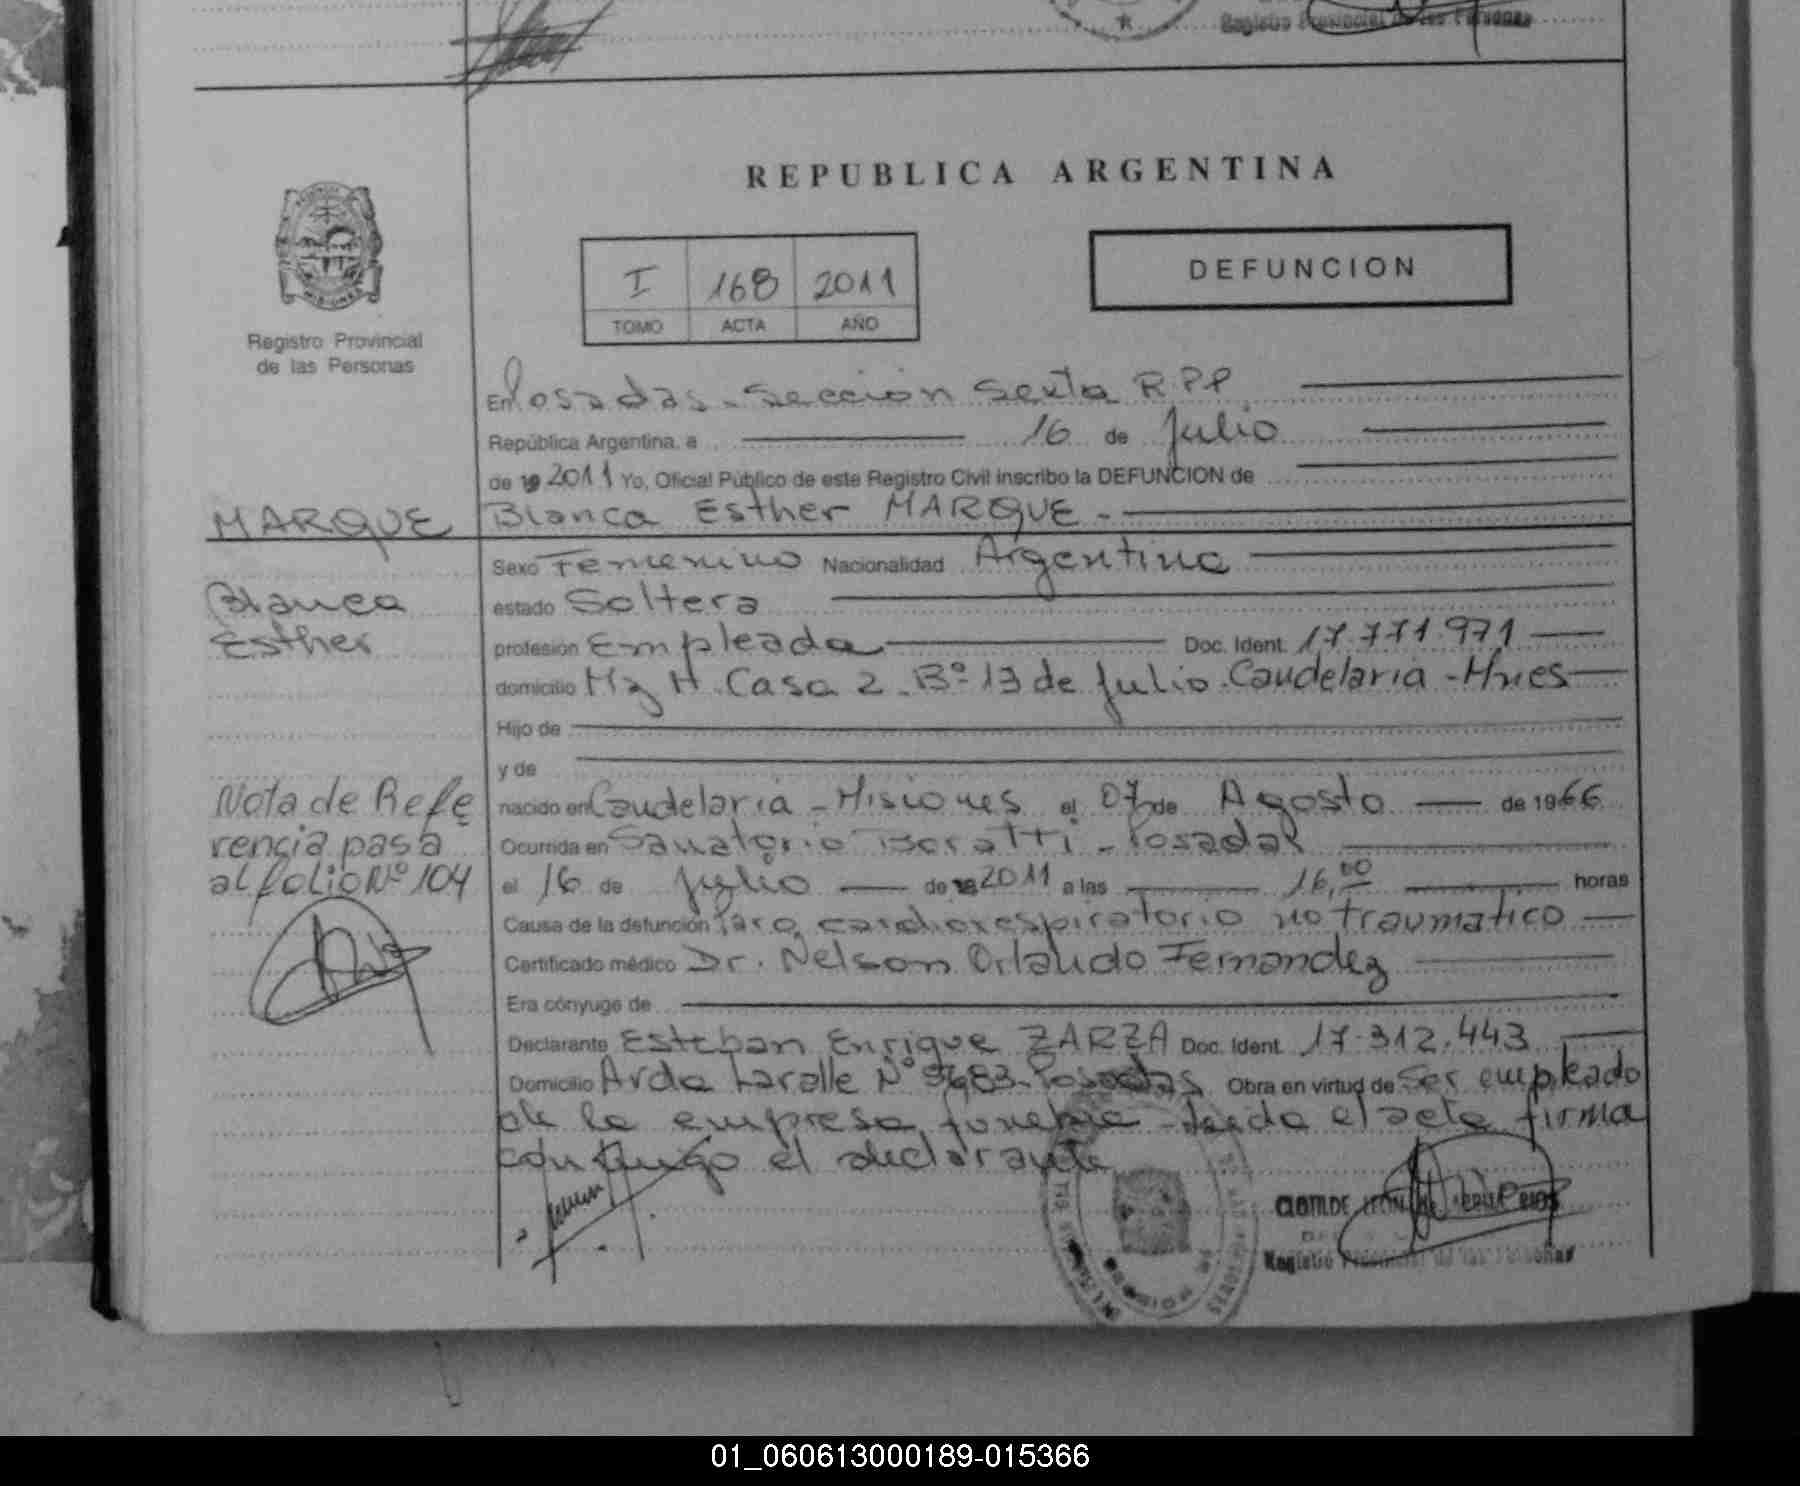 Registro Provincial de las Personas
REPUBLICA ARGENTINA
I 168 2011
TOMO ACTA AÑO
DEFUNCION
MISIONES
Registro Provincial
de las Personas
En Posadas - Sección Sexta R.P.P.
República Argentina, a 16 de Julio
de 19 2011 Yo, Oficial Público de este Registro Civil inscribo la DEFUNCION de
MARQUE
Blanca Esther MARQUE -
Sexo Femenino Nacionalidad Argentina
Blanca
estado Soltera
Esther
profesión Empleada Doc. Ident. 17.771.971
domicilio Mz H. Casa 2. Bº 13 de Julio. Candelaria - Mnes
Hijo de
y de
Nota de Refe
nacido en Candelaria - Misiones el 07 de Agosto de 1966
rencia pasa
Ocurrida en Sanatorio Boratti - Posadas
al folio Nº 104
el 16 de Julio de 2011 a las 16,00 horas
Causa de la defunción Paro cardiorespiratorio no traumatico
Certificado médico Dr. Nelson Orlando Fernandez
Era cónyuge de
Declarante Esteban Enrique ZARZA Doc. Ident. 17.312.443
Domicilio Avda Lavalle Nº Posadas Obra en virtud de Ser empleado
de la empresa funebre - leida el acta firma
conmigo el declarante
CLOTILDE LEON
Registro Provincial de las Personas
01_060613000189-015366